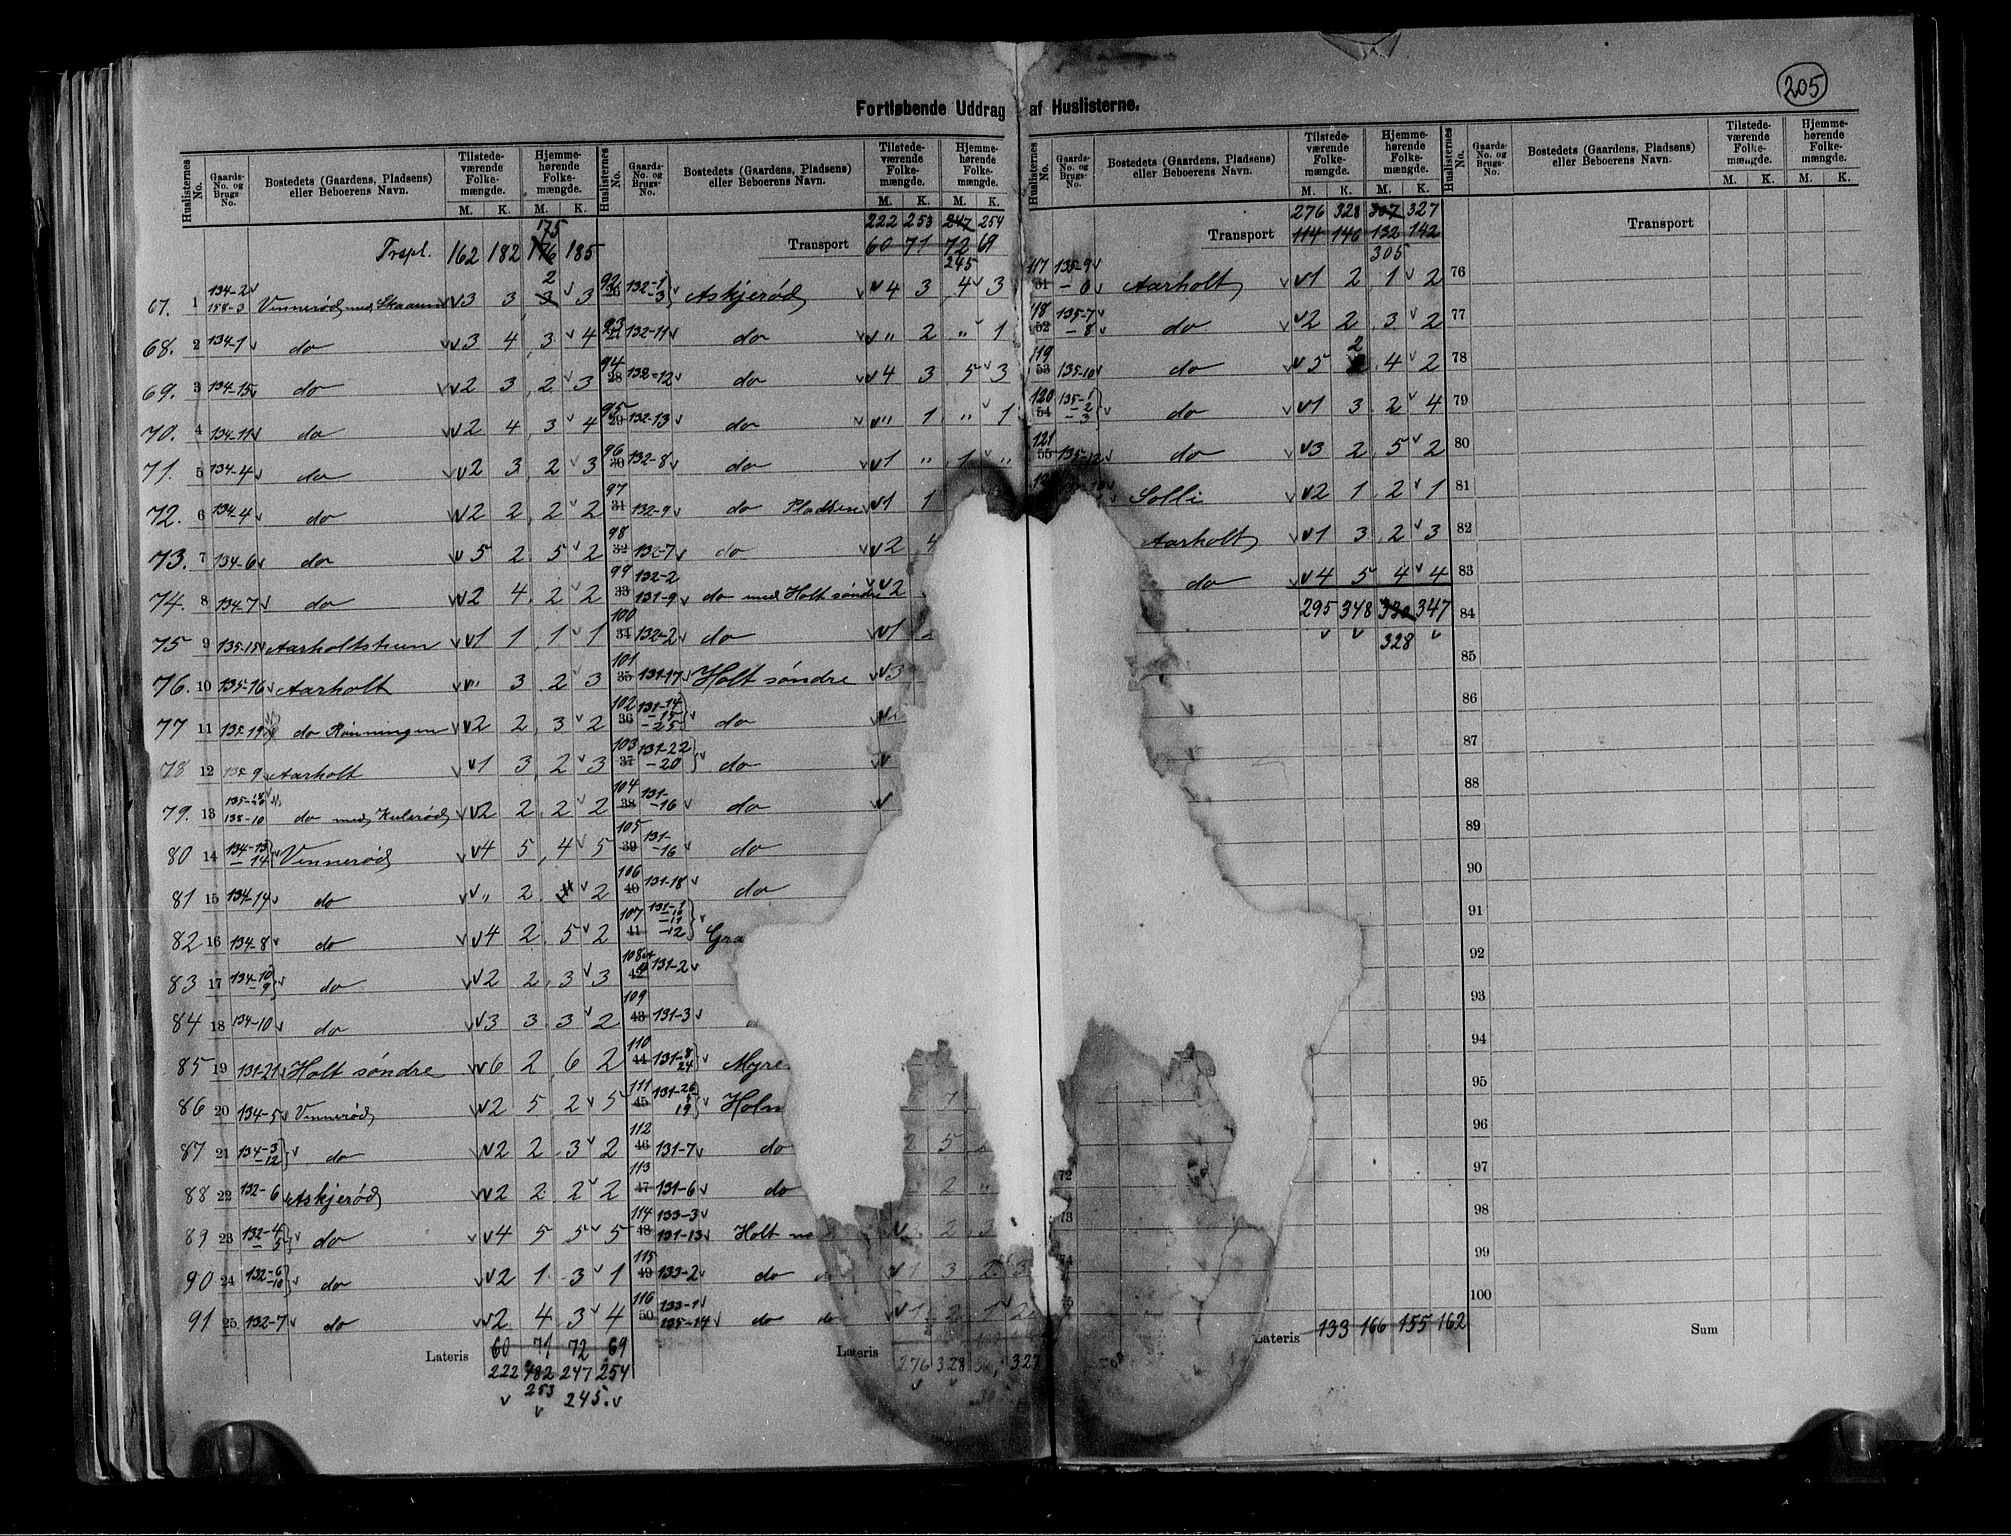 205
Fortløbende Uddrag af Huslisterne.
Huslisternes No. Gaards-No. og Brugs-No. Bostedets (Gaardens, Pladsens) eller Beboerens Navn. Tilstedeværende Folkemængde. Hjemmehørende Folkemængde.
M. K. M. K.
175
Trspt. 162 182 176 185
67. 1 134-2 158-3 Vinnerød med Skaaum 3 3 2 3 3
68. 2 134-1 do 3 4 3 4
69. 3 134-15 do 2 3 2 3
70. 4 134-11 do 2 4 3 4
71. 5 134-4 do 2 3 2 3
72. 6 134-4 do 2 2 2 2
73. 7 134-6 do 5 2 5 2
74. 8 134-7 do 2 4 2 2
75 9 135-15 Aarholtstrun 1 1 1 1
76. 10 135-16 Aarholt " 3 2 3
77 11 135-19 do Rønningen 2 2 3 2
78 12 135-9 Aarholt 1 3 2 3
79. 13 138-10 do med Kulerød 2 2 2 2
80 14 134-13 -14 Vinnerød 4 5 4 5
81 15 134-14 do " 2 " 2
82 16 134-8 do 4 2 5 2
83 17 134-10 -9 do 2 2 3 3
84 18 134-10 do 3 3 3 2
85 19 131-21 Holt søndre 6 2 6 2
86 20 134-5 Vinnerød 2 5 2 5
87 21 134-3 -12 do 2 2 3 2
88 22 132-6 Askjerød 2 2 2 2
89 23 132-4 -5 do 4 5 5 5
90 24 132-6 -10 do 2 1 3 1
91 25 132-7 do 2 4 3 4
Lateris 60 71 72 69
222 182 247 254
253 245.
Huslisternes No. Gaards-No. og Brugs-No. Bostedets (Gaardens, Pladsens) eller Beboerens Navn. Tilstedeværende Folkemængde. Hjemmehørende Folkemængde.
M. K. M. K.
222 253 247 254
Transport 60 71 72 69
245
92 26 132-1 -3 Askjerød 4 3 4 3
93 27 132-11 do " 2 " 1
94 28 132-12 do 4 3 5 3
95 29 132-13 do " 1 " 1
96 30 132-8 do 1 " 1 "
97 31 132-9 do Pladsen 1 1
98 32 132-7 do 2 4
99 33 132-2 131-9 do med Holt søndre 2
100 34 132-2 do 1
101 35 131-17 Holt søndre 3
102 36 131-14 -15 -25 do
103 37 131-22 -20 do
104 38 131-16 do
105 39 131-16 do
106 40 131-18 do
107 41 131-1 -12 Gra
108 42 131-2
109 43 131-3
110 44 131-8 24 Myre
111 45 131-26 19 Holm 7
112 46 131-7 do 2 5
113 47 131-6 do 2 "
114 48 133-3 131-13 Holt 2 3
115 49 133-2 do 1 3 2 3
116 50 133-1 135-14 do do 1 2 1 2
Lateris 276 328 327
Huslisternes No. Gaards-No. og Brugs-No. Bostedets (Gaardens, Pladsens) eller Beboerens Navn. Tilstedeværende Folkemængde. Hjemmehørende Folkemængde.
M. K. M. K.
276 328 307 327
Transport 114 146 132 142
305
117 51 135-9 Aarholt 1 2 1 2
118 52 135-7 -8 do 2 2 3 2
119 53 135-10 do 5 2 4 2
120 54 135-1 -2 -3 do 1 3 2 4
121 55 135-12 do 3 2 5 2
Solli 2 1 2 1
Aarholt 1 3 2 3
do 4 5 4 4
295 348 330 347
328
72
73
Lateris 133 166 155 162
Huslisternes No. Gaards-No. og Brugs-No. Bostedets (Gaardens, Pladsens) eller Beboerens Navn. Tilstedeværende Folkemængde. Hjemmehørende Folkemængde.
M. K. M. K.
Transport
76
77
78
79
80
81
82
83
84
85
86
87
88
89
90
91
92
93
94
95
96
97
98
99
100
Sum